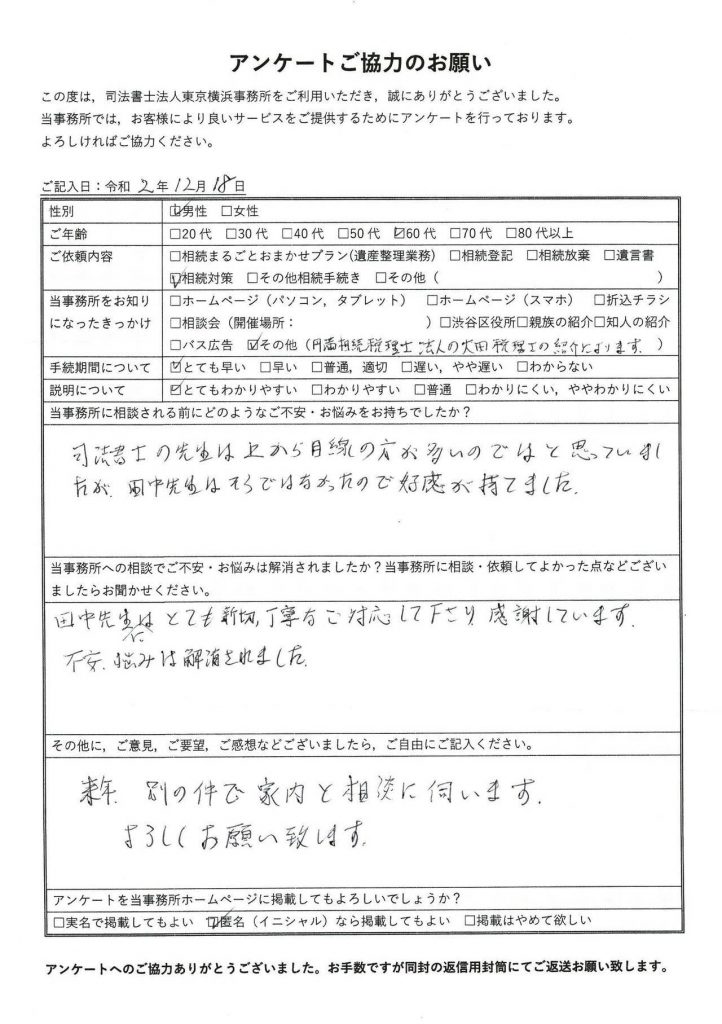 アンケートご協力のお願い
この度は，司法書士法人東京横浜事務所をご利用いただき，誠にありがとうございました。
当事務所では，お客様により良いサービスをご提供するためにアンケートを行っております。
よろしければご協力ください。
ご記入日：令和 2 年 12 月 18 日
性別 ☑男性 □女性
ご年齢 □20 代 □30 代 □40 代 □50 代 ☑60 代 □70 代 □80 代以上
ご依頼内容 □相続まるごとおまかせプラン(遺産整理業務) □相続登記 □相続放棄 □遺言書
☑相続対策 □その他相続手続き □その他（ ）
当事務所をお知り □ホームページ（パソコン，タブレット） □ホームページ（スマホ） □折込チラシ
になったきっかけ □相談会（開催場所： ）□渋谷区役所□親族の紹介□知人の紹介
□バス広告 ☑その他（円満相続税理士法人の 税理士の紹介によります。）
手続期間について ☑とても早い □早い □普通，適切 □遅い，やや遅い □わからない
説明について ☑とてもわかりやすい □わかりやすい □普通 □わかりにくい，ややわかりにくい
当事務所に相談される前にどのようなご不安・お悩みをお持ちでしたか？
司法書士の先生は上から目線の方が多いのではと思っていまし
たが、田中先生はそうではなかったので好感が持てました。
当事務所への相談でご不安・お悩みは解消されましたか？当事務所に相談・依頼してよかった点などござい
ましたらお聞かせください。
田中先生にはとても親切、丁寧なご対応して下さり感謝しています。
不安、悩みは解消されました。
その他に，ご意見，ご要望，ご感想などございましたら，ご自由にご記入ください。
来年、別の件で家内と相談に伺います。
よろしくお願い致します。
アンケートを当事務所ホームページに掲載してもよろしいでしょうか？
□実名で掲載してもよい ☑匿名（イニシャル）なら掲載してもよい □掲載はやめて欲しい
アンケートへのご協力ありがとうございました。お手数ですが同封の返信用封筒にてご返送お願い致します。